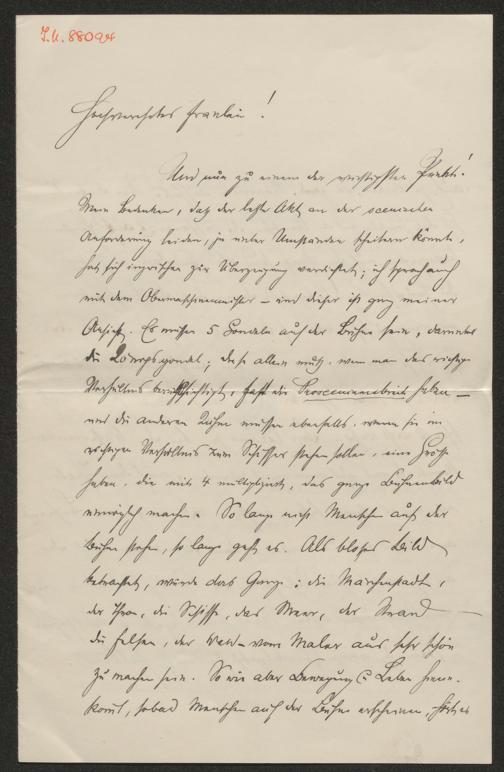 J.N. 88094
Hochverehrtes Fräulein!
Und nun zu einem der wichtigsten Punkte!
Mein Bedenken, daß der letzte Akt an der scenischen
Anforderung leiden, ja unter Umständen scheitern könnte,
hat sich inzwischen zur Überzeugung verdichtet; ich sprach auch
mit dem Obermaschinenmeister – und dieser ist ganz meiner
Ansicht. Es müssen 5 Gondeln auf der Bühne sein, darunter
die Königsgondel; diese allein muß, wenn man das richtige
Verhältnis berücksichtigt, fast die Prosceniumsbreite haben –
und die anderen Kähne müssen ebenfalls, wenn sie im
richtigen Verhältnis zum Schiffer stehen sollen, eine Größe
haben, die mit 4 multipliziert, das ganze Bühnenbild
unmöglich machen. So lange nicht Menschen auf der
Bühne stehen, so lange geht es. Als bloßes Bild
betrachtet, würde das Ganze: die Märchenstadt,
der Thron, die Schiffe, das Meer, der Strand –
die Felsen, der Wald – vom Maler aus sehr schön
zu machen sein. So wie aber Bewegung & Leben hinein-
kommt, sobald Menschen auf der Bühne erscheinen,